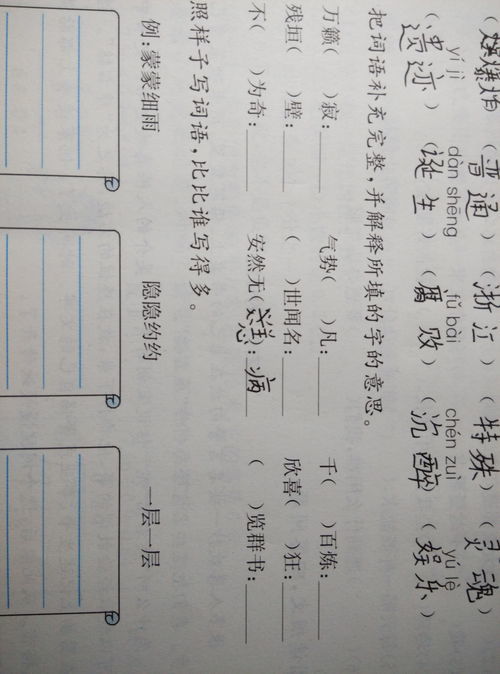 (爆炸) (普通) (浙江) (特殊) (灵魂)
yí jì dàn shēng fǔ bài chén zuì yú lè
(遗迹) (诞生) (腐败) (沉醉) (娱乐)
把词语补充完整,并解释所填的字的意思。
万籁( )寂:____ 气势( )凡:____ 千( )百炼:____
残垣( )壁:____ ( )世闻名:____ 欣喜( )狂:____
不( )为奇:____ 安然无(恙):病 ( )览群书:____
照样子写词语,比比谁写得多。
例:蒙蒙细雨 隐隐约约 一层一层